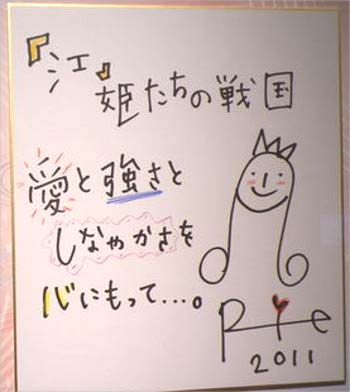 『江』
姫たちの戦国
愛と強さと
しなやかさを
心にもって…。
Rie
2011